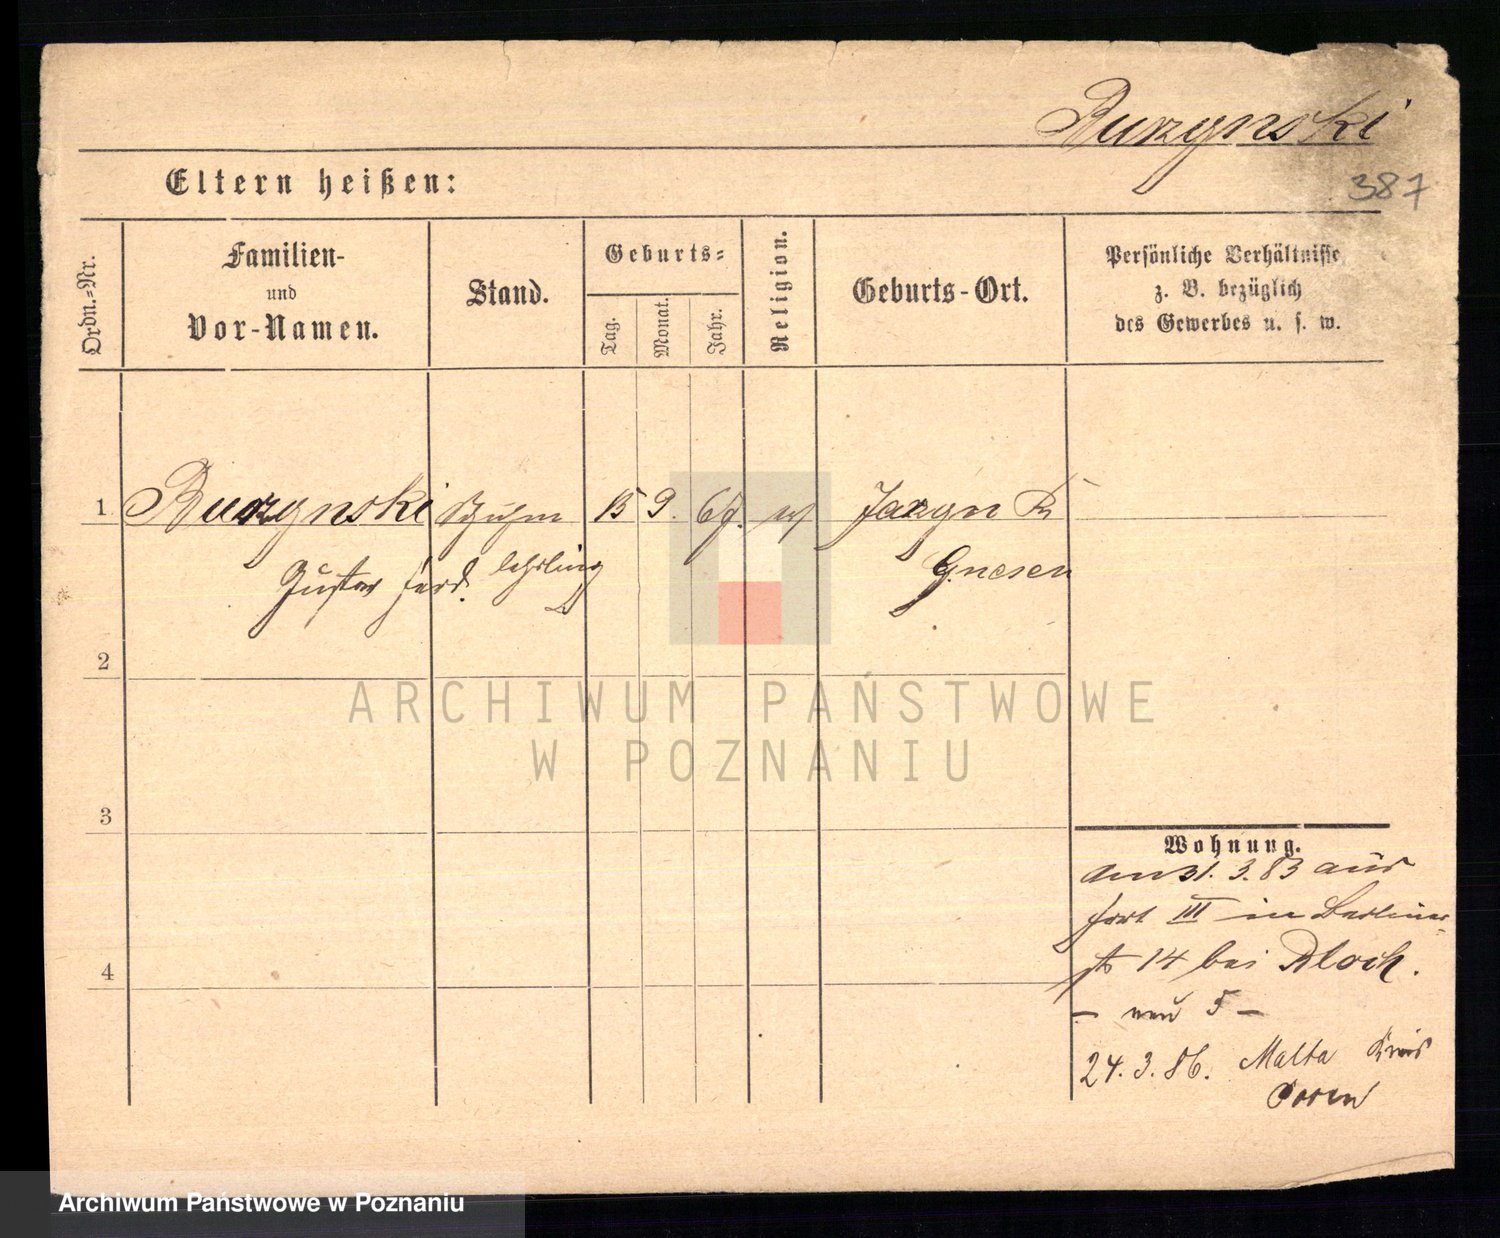 Burzynski
387
Eltern heißen:
Ordn.-Nr.
Familien-
und
Vor-Namen.
Stand.
Geburts-
Tag.
Monat.
Jahr.
Religion.
Geburts-Ort.
Persönliche Verhältnisse
z. B. bezüglich
des Gewerbes u. s. w.
1 Burzynski 15 9. 67.
Gustav Ferd. lehrling Gnesen
2
3
4
Wohnung.
am 31. 3. 83 aus
Fort III in Berliner-
str 14 bei Bloch.
– neu 5 –
24. 3. 86. Malta Kreis
Posen
ARCHIWUM PAŃSTWOWE
W POZNANIU
Archiwum Państwowe w Poznaniu